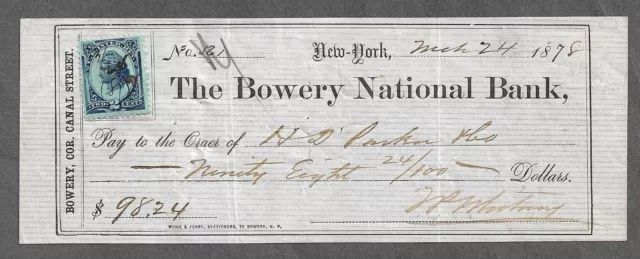 BOWERY, COR. CANAL STREET.
TWO 2 CENTS
No.
New-York, Mch 24 1878
The Bowery National Bank,
Pay to the Order of H D Parker & Co
Ninety Eight 24/100 Dollars.
$ 98.24
HOWE & FERRY, STATIONERS, 76 BOWERY, N. Y.